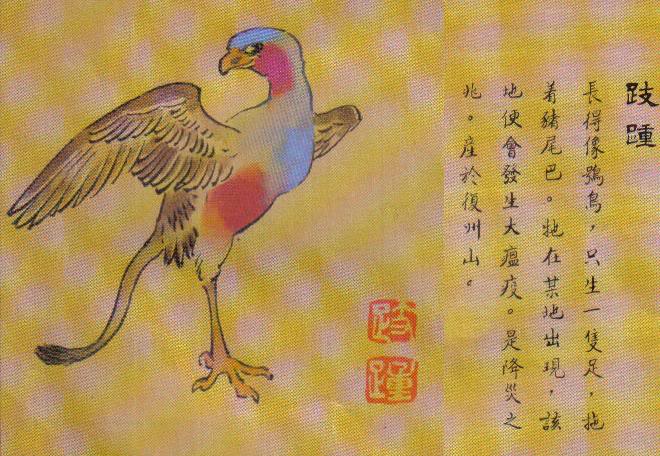 跂踵
長得像鴞鳥，只生一隻足，拖
着豬尾巴。牠在某地出現，該
地便會發生大瘟疫。是降災之
兆。産於復州山。
跂
踵